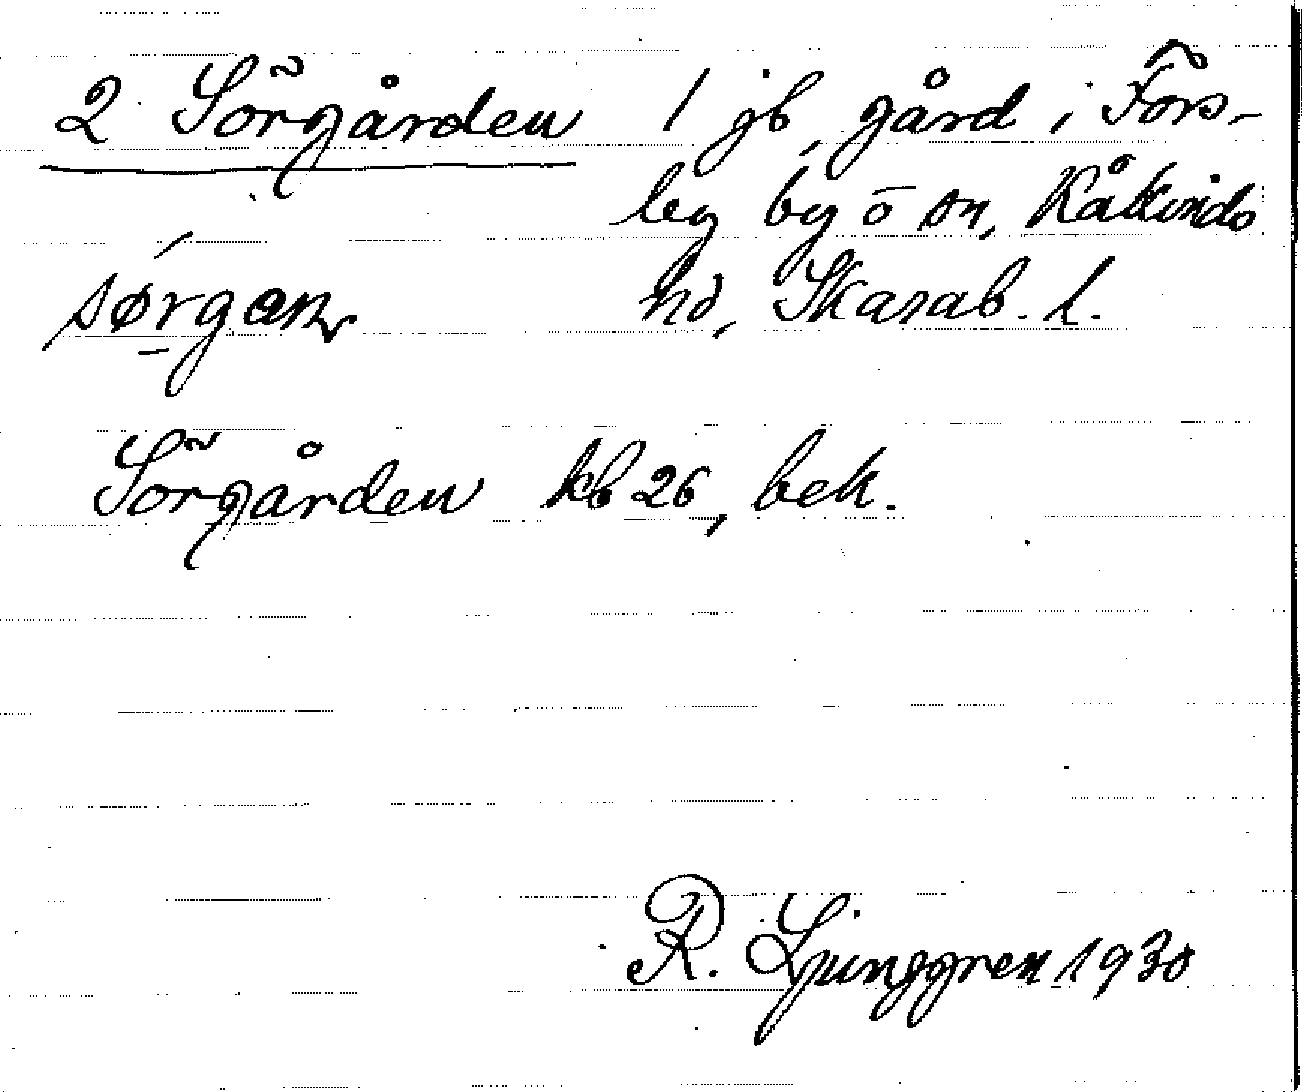 2 Sörgården 1 jb, gård i Fors-
by by o sn, Kåkinds
sørgan hd, Skarab. l.
Sörgården kb 26, bek.
R. Ljunggren 1930